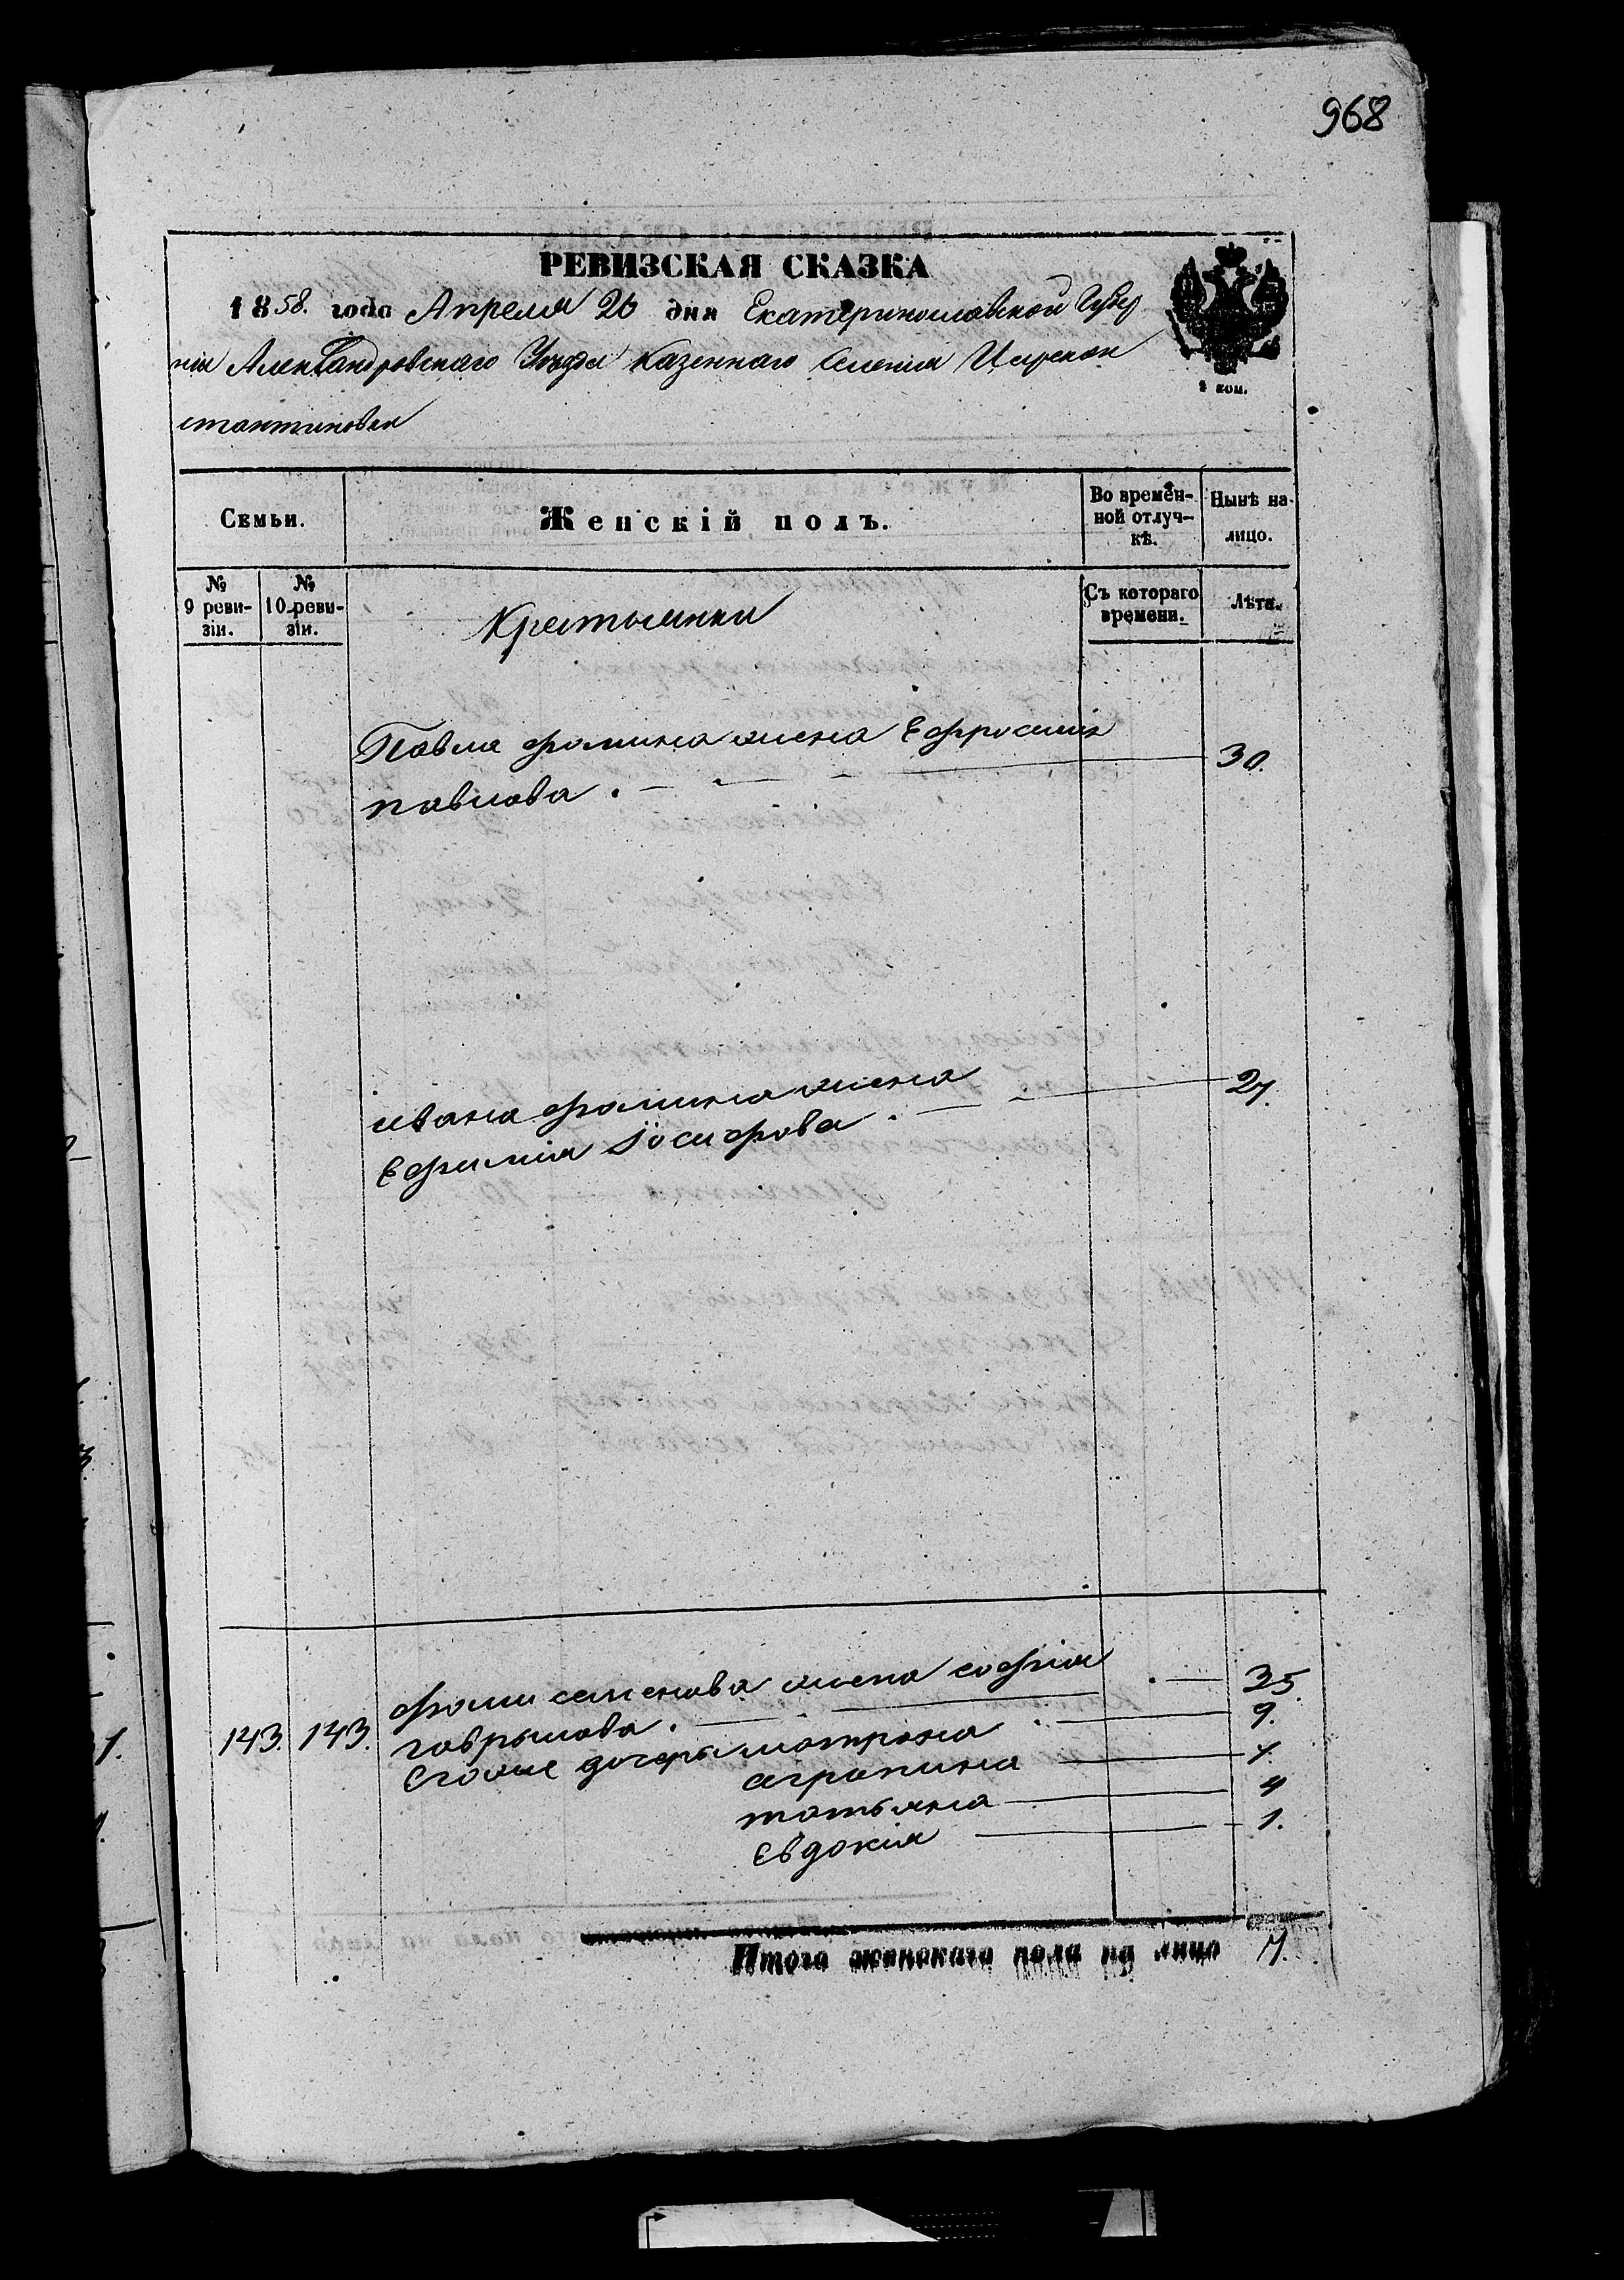 968
РЕВИЗСКАЯ СКАЗКА
1858. года Апреля 26 дня Екатеринославской Губер
ніи Александровскаго Уѣзда казеннаго селенія Царекон
стантиновки
Семьи.
Женскій полъ.
Во времен-
ной отлуч-
кѣ.
Нынѣ на-
лицо.
№
9 реви-
зіи.
№
10 реви-
зіи.
Крестьянки
Съ котораго
времени.
Лѣта.
Павла фомина жена Ефросинія
павлова . 30.
ивана фомина жена 27.
Ефимія Іосифова .
143. 143. фомы семенова жена софія 35.
гаврылова .
Егоже дочеры матрона 9.
аграпина 7.
татьяна 4
Евдокія 1.
Итого женскаго пола на лицо 7.